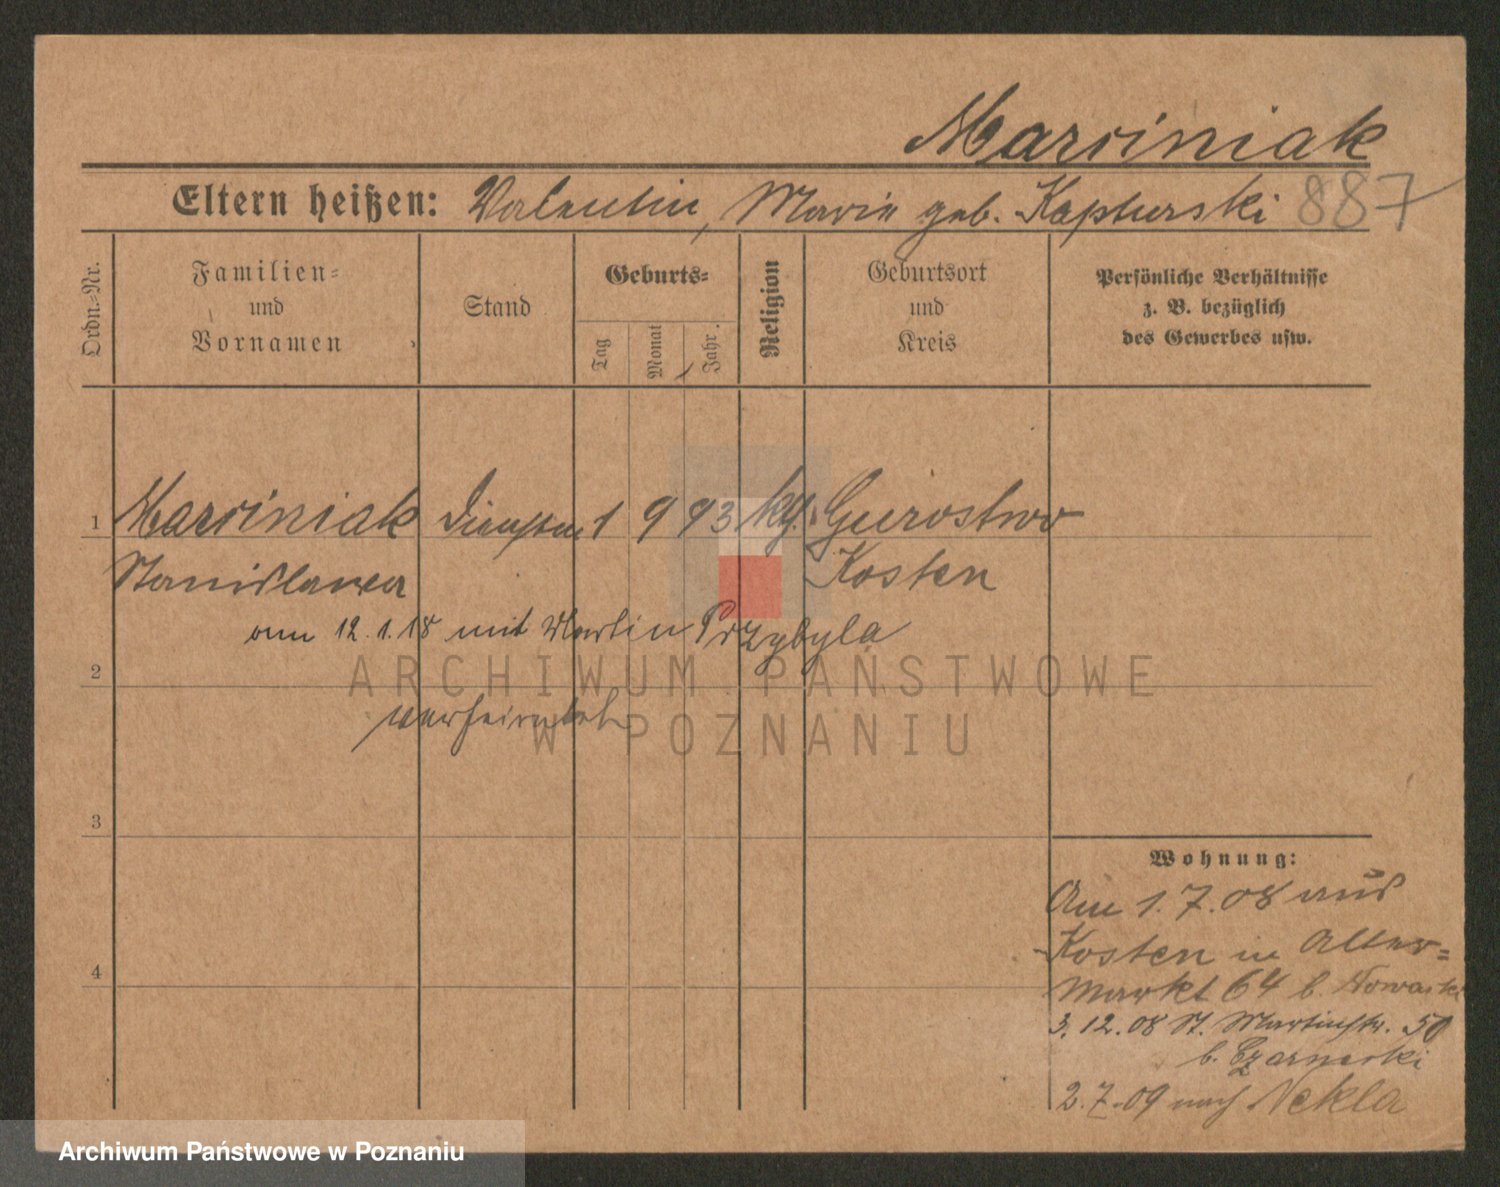 Marciniak
Eltern heißen: Valentin, Marie geb. Kapturski 887
Ordn.=Nr.
Familien=
und
Vornamen
Stand
Geburts=
Tag
Monat
Jahr
Religion
Geburtsort
und
Kreis
Persönliche Verhältnisse
z. B. bezüglich
des Gewerbes usw.
1 Marciniak 1 9 93 kg.
Stanislawa Kosten
am 12.1.18 mit Martin Przybyla
2
verheiratet
3
4
Wohnung:
Am 1.7.08 aus
Kosten in Alter=
Markt 64 b. Nowacki
3.12.08 St. Martinstr. 50
b.
2.7.09 nach Nekla
ARCHIWUM PAŃSTWOWE
W POZNANIU
Archiwum Państwowe w Poznaniu